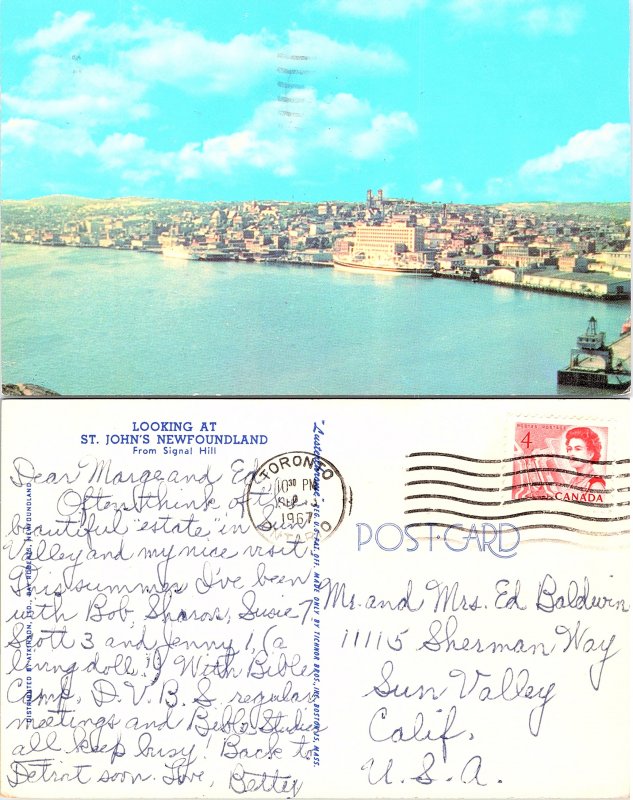 LOOKING AT
ST. JOHN'S NEWFOUNDLAND
From Signal Hill
Dear Marge and Ed,
Often think of the
beautiful "estate" in Sun
Valley and my nice visit.
This summer I've been
with Bob, Sharon, Susie 7,
Scott 3 and Jenny 1 (a
living doll.) With Bible
Camp, D.V.B.S. regular
meetings and Bible Studies
all keep busy! Back to
Detroit soon. Love, Betty
DISTRIBUTED BY ATKINSON, LTD., BAY ROBERTS, NEWFOUNDLAND
"Lusterchrome" REG. U.S. PAT. OFF. MADE ONLY BY TICHNOR BROS., INC. BOSTON, MASS.
TORONTO
10 30 PM
1967
4
POSTES POSTAGE
CANADA
POST CARD
Mr. and Mrs. Ed Baldwin
11115 Sherman Way
Sun Valley
Calif.
U.S.A.